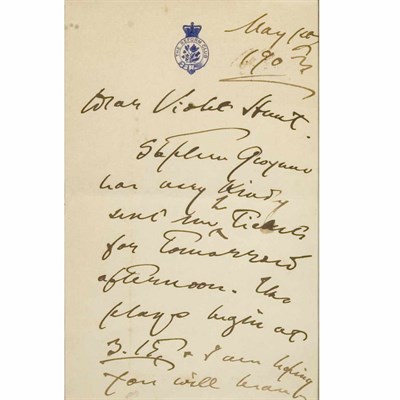 THE REFORM CLUB
May 1st
1903
Dear Violet Hunt.
Stephen Gwynn
has very kindly
sent me 2 Tickets
for Tomorrow
afternoon. The
plays begin at
3.15 & I am hoping
you will